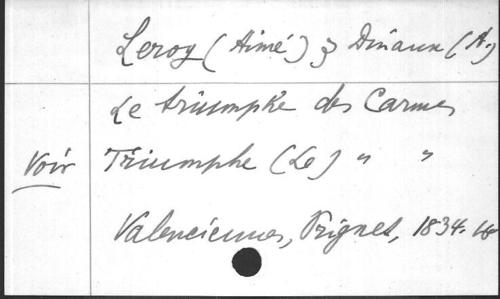 Leroy (Aimé) & Dinaux (A.)
Le triumphe des Carmes
Voir Triumphe (Le) " "
Valenciennes, Prignet, 1834. in